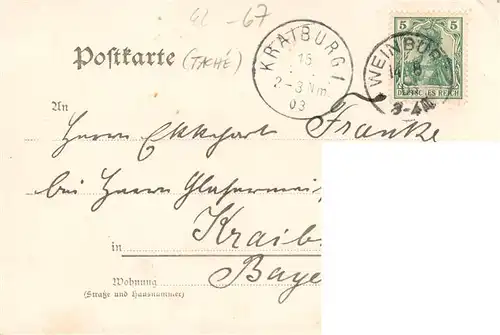 -67
5 5
Postkarte (TACHÉ)
KRAIBURG I.
13
2-3 Nm.
03
WEINBURG
DEUTSCHES REICH
An
Herrn Ekkehart Franke
bei Herrn Glasermei
Kraib
in
Baye
Wohnung
(Straße und Hausnummer)